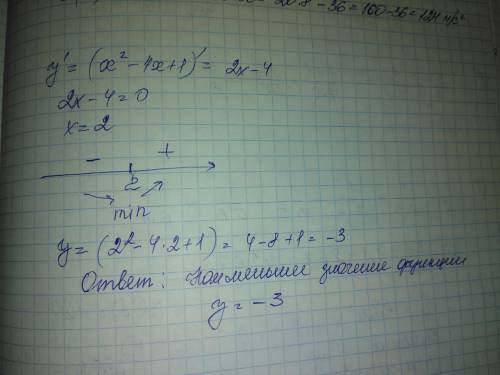 20·8 - 36 = 160 - 36 = 124
y' = (x² - 4x + 1)' = 2x - 4
2x - 4 = 0
x = 2
- +
2
min
y = (2² - 4·2 + 1) = 4 - 8 + 1 = -3
Ответ: Наименьшее значение функции
y = -3